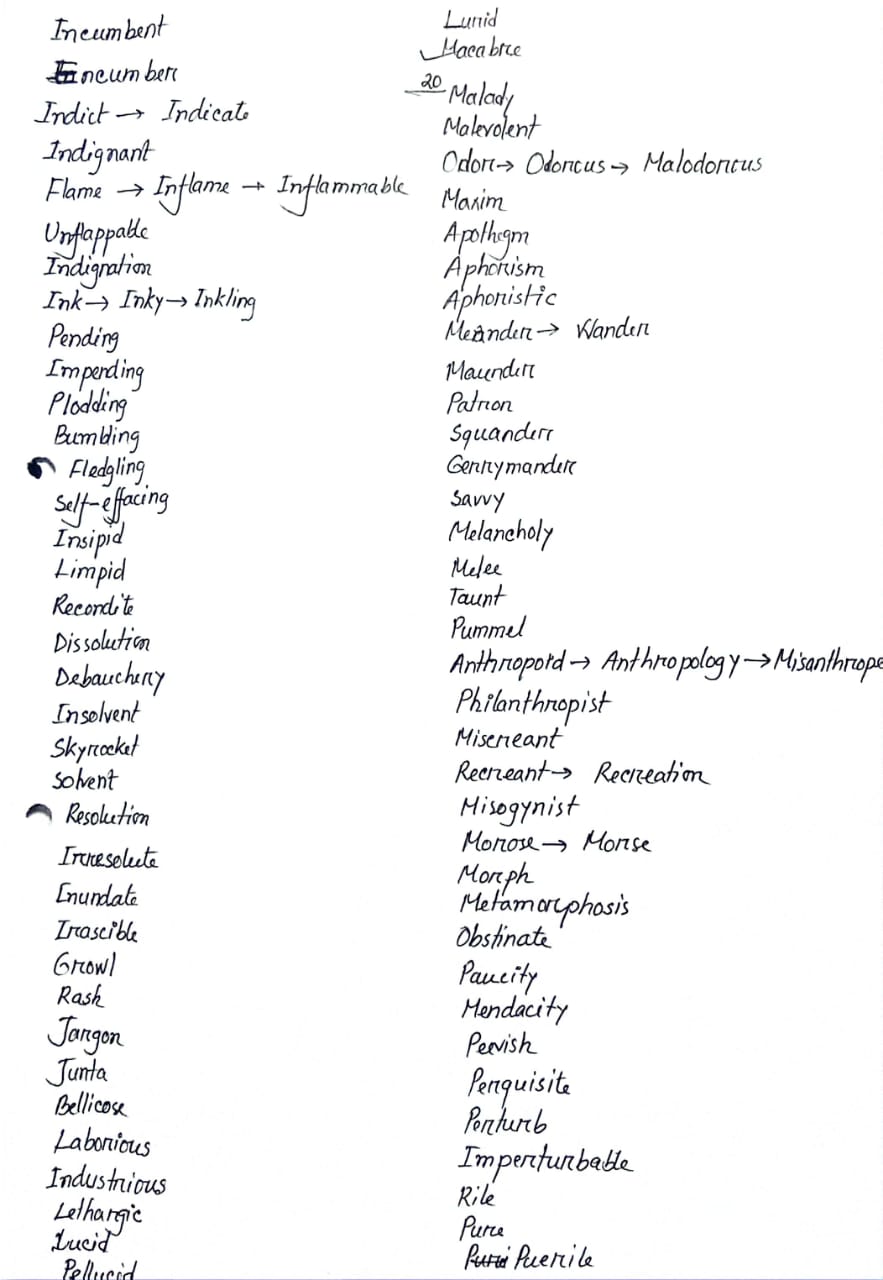 Incumbent
Encumber
Indict → Indicate
Indignant
Flame → Inflame → Inflammable
Unflappable
Indignation
Ink → Inky → Inkling
Pending
Impending
Plodding
Bumbling
Fledgling
Self-effacing
Insipid
Limpid
Recondite
Dissolution
Debauchery
Insolvent
Skyrocket
Solvent
Resolution
Irresolute
Inundate
Irascible
Growl
Rash
Jargon
Junta
Bellicose
Laborious
Industrious
Lethargic
Lucid
Pellucid
Lurid
Macabre
20 Malady
Malevolent
Odor → Odorous → Malodorous
Maxim
Apothegm
Aphorism
Aphoristic
Meander → Wander
Maunder
Patron
Squander
Gerrymander
Savvy
Melancholy
Melee
Taunt
Pummel
Anthropoid → Anthropology → Misanthrope
Philanthropist
Miscreant
Recreant → Recreation
Misogynist
Morose → Morse
Morph
Metamorphosis
Obstinate
Paucity
Mendacity
Peevish
Perquisite
Perturb
Imperturbable
Rile
Pure
Puerile